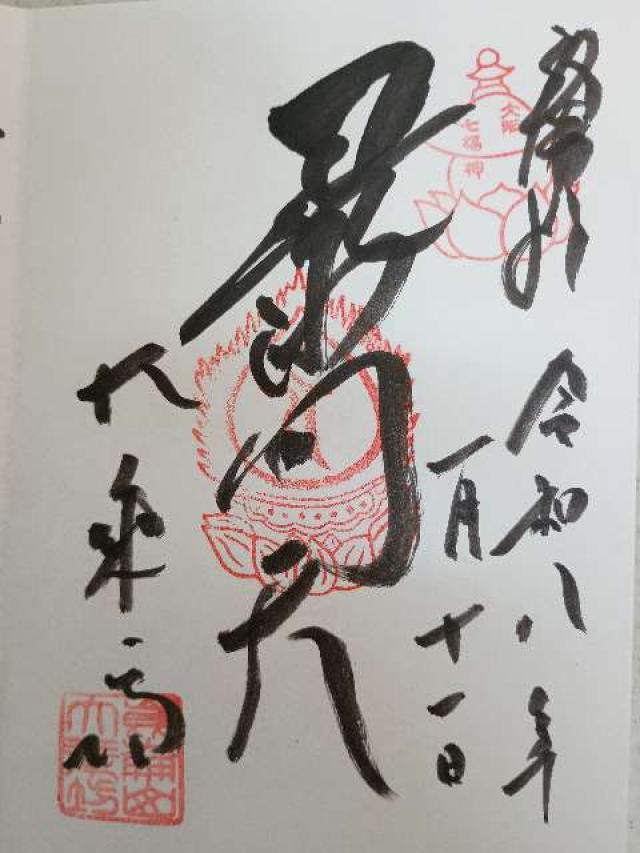 奉拝
大阪
七福神
令和八年
一月十一日
毘沙門天
大乗坊